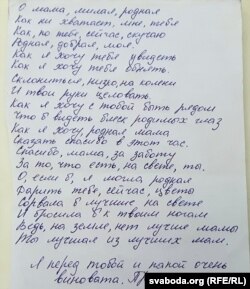 О мама, милая, родная
Как не хватает, мне, тебя
Как, по тебе, сейчас, скучаю
Родная, добрая, моя.
Как я хочу тебя увидеть
Как я хочу тебя обнять.
Склониться, низко, на колени
И твои руки целовать
Как я хочу с тобой быть рядом
Что б видеть блеск родимых глаз
Как я хочу, родная мама
Сказать спасибо в этот час.
Спасибо, мама, за заботу
За то, что есть, на свете, ты.
О, если б, я могла родная
Дарить тебе, сейчас, цветы
Сорвала б лучшие, на свете
И бросила б к твоим ногам
Ведь, на земле, нет лучше мамы
Ты лучшая из лучших мам.
Я перед тобой и папой очень
виновата.
svaboda.org (RFE/RL)